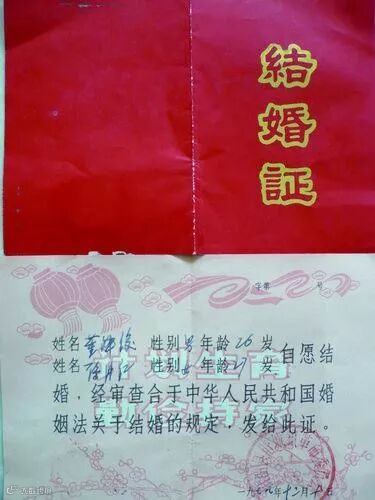 結
婚
証
字第 号
姓名 性别男年龄26岁
姓名 性别女年龄 岁自愿结
计划生育
婚，经审查合于中华人民共和国婚
勤俭持家
姻法关于结婚的规定·发给此证。
一九七九年十二月 日